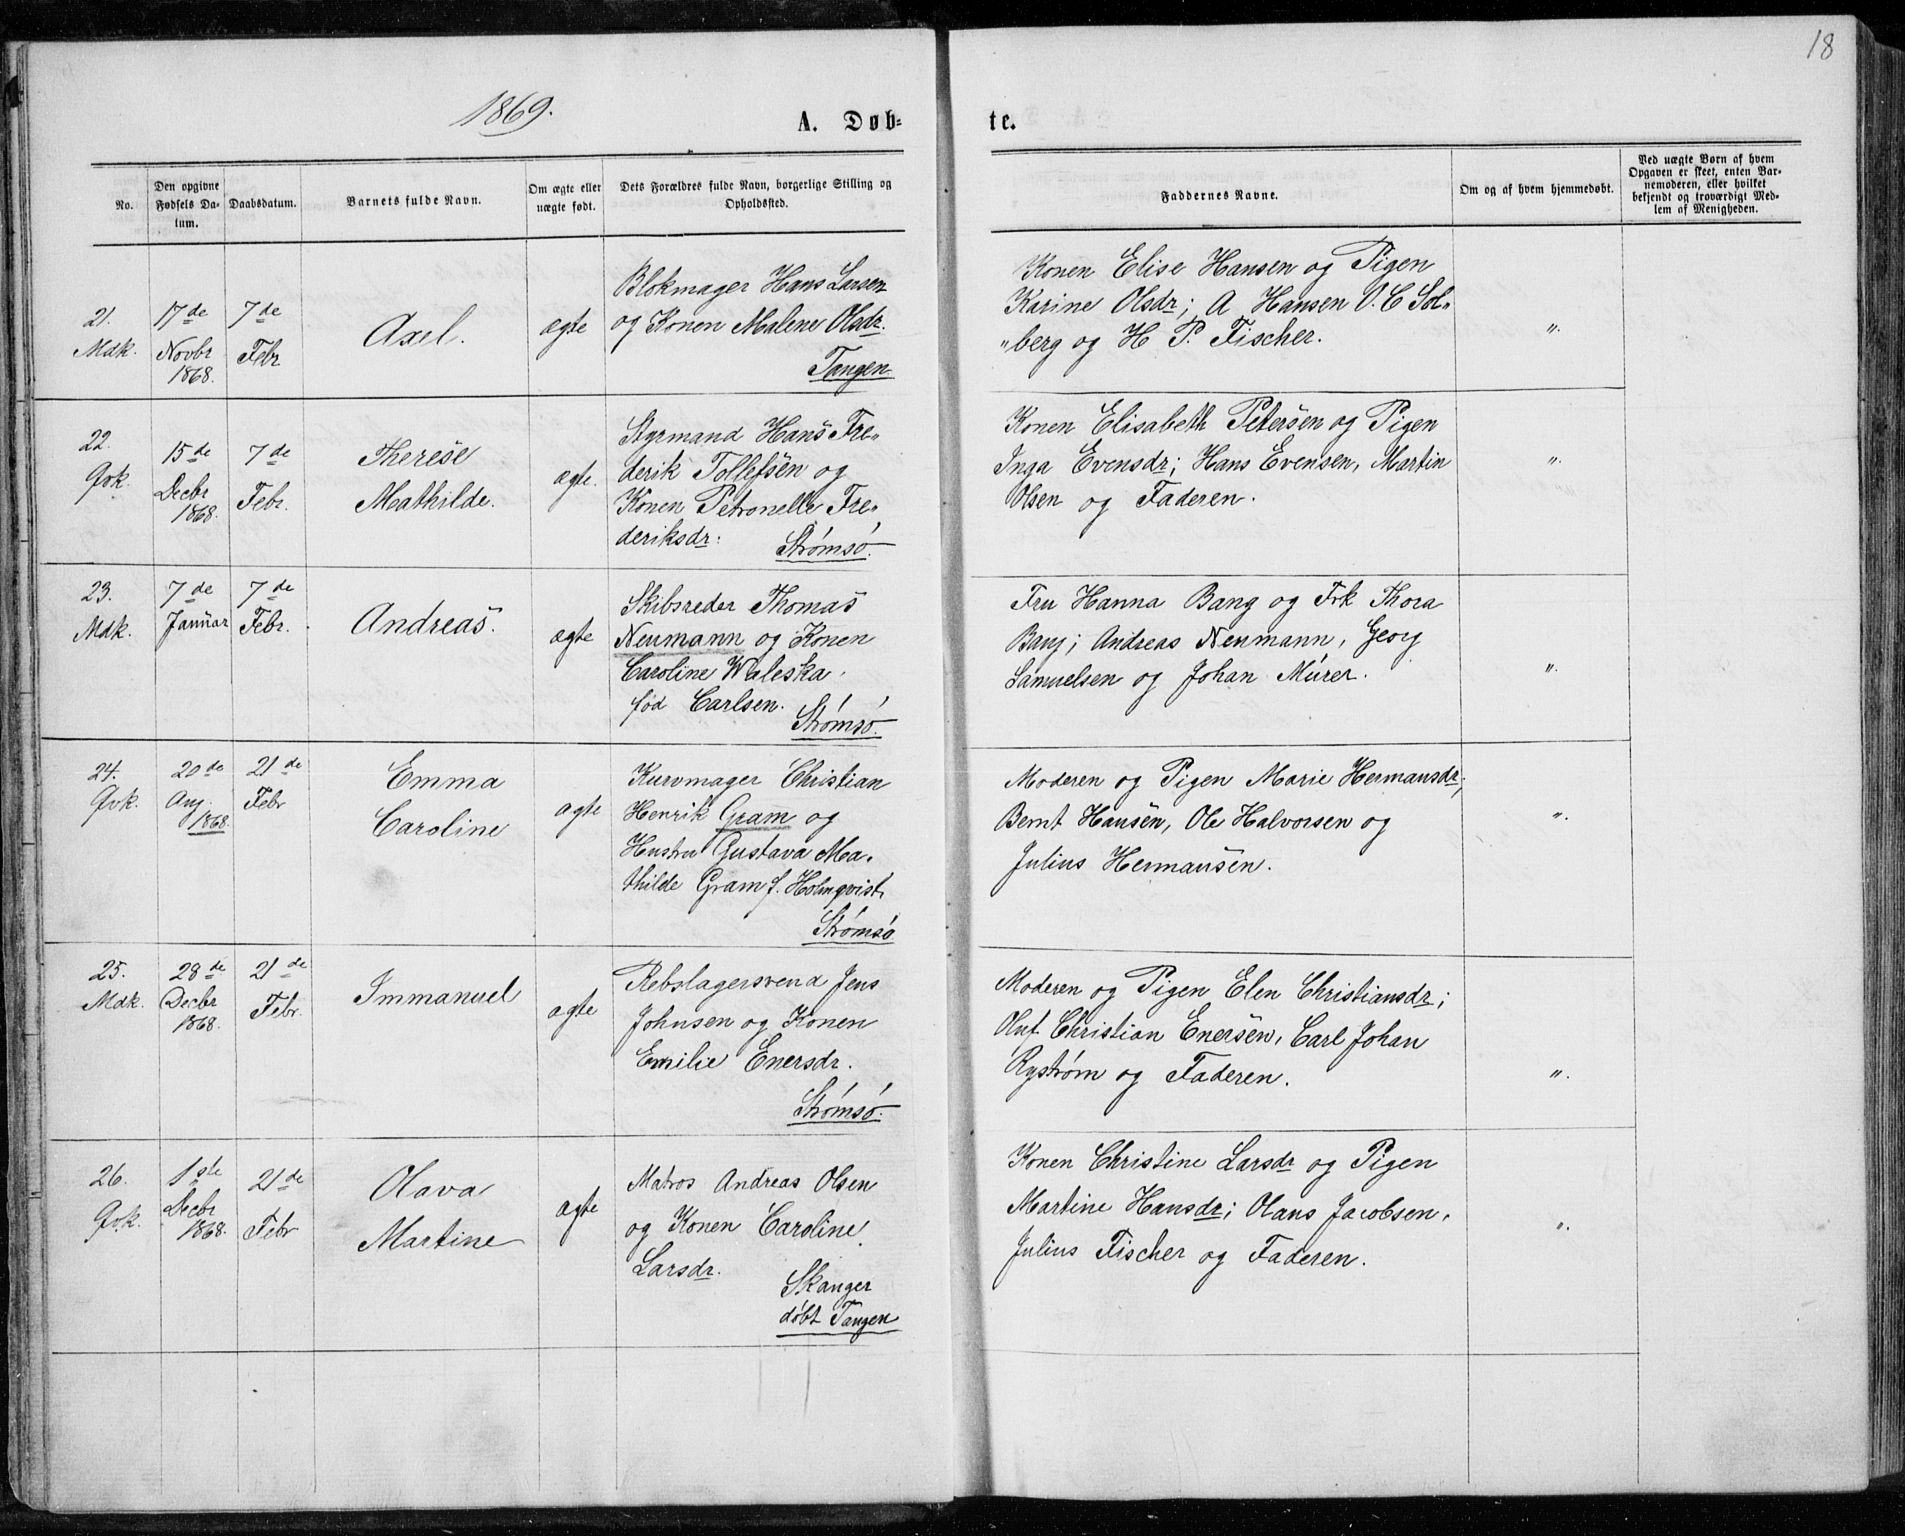 18
1869.
A. Døb-
te.
No.
Den opgivne
Fødsels Da-
tum.
Daabsdatum.
Barnets fulde Navn.
Om ægte eller
uægte født.
Dets Forældres fulde Navn, borgerlige Stilling og
Opholdssted.
Faddernes Navne.
Om og af hvem hjemmedøbt.
Ved uægte Børn af hvem
Opgaven er skeet, enten Bar-
nemoderen, eller hvilket
bekjendt og troværdigt Med-
lem af Menigheden.
21.
Mdk.
17de
Novbr
1868.
7de
Febr
Axel.
ægte
Blokmager Hans Larsen
og Konen Malene Olsdr.
Tangen
Konen Elise Hansen og Pigen
Karine Olsdr; A Hansen O. C Sol„
„berg og H P. Fischer.
„.
22.
Qvk.
15de
Decbr
1868.
7de
Febr.
Therese
Mathilde.
ægte.
Styrmand Hans Fre„
derik Tollefsen og
Konen Petronelle Fre„
deriksdr.
Strømsø.
Konen Elisabeth Petersen og Pigen
Inga Evensdr; Hans Evensen, Martin
Olsen og Faderen.
„.
23.
Mdk.
7de
Januar
7de
Febr.
Andreas.
ægte
Skibsreder Thomas
Neumann og Konen
Caroline Waleska.
fød Carlsen.
Strømsø.
Fru Hanna Bang og Frk Thora
Bang; Andreas Neumann, Georg
Samuelsen og Johan Mürer.
„.
24.
Qvk.
20de
Aug.
1868.
21de
Febr
Emma
Caroline
ægte
Kurvmager Christian
Henrik Gram og
Hustru Gustava Ma.
thilde Gram f. Holmqvist.
Strømsø
Moderen og Pigen Marie Hermansdr;
Bernt Hansen, Ole Halvorsen og
Julius Hermansen.
„.
25.
Mdk.
28de
Decbr
1868.
21de
Febr.
Immanuel
ægte
Rebslagersvend Jens
Johnsen og Konen
Emilie Enersdr.
Strømsø.
Moderen og Pigen Elen Christiansdr;
Oluf Christian Enersen, Carl Johan
Rystrøm og Faderen.
„.
26.
Qvk.
1ste
Decbr
1868.
21de
Febr
Olava
Martine
ægte
Matros Andreas Olsen
og Konen Caroline
Larsdr.
Skanger
døbt Tangen
Konen Christine Larsdr og Pigen
Martine Hansdr; Olaus Jacobsen,
Julius Fischer og Faderen.
„.